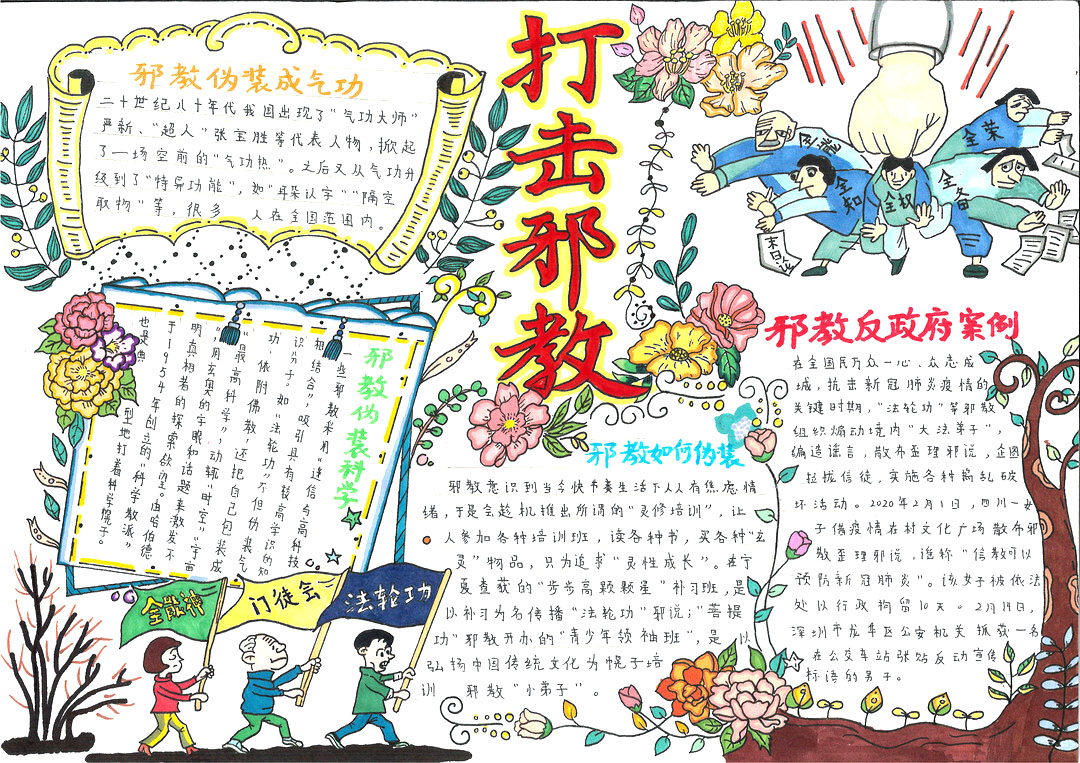 打击邪教
邪教伪装成气功
二十世纪八十年代我国出现了“气功大师”
严新、“超人”张宝胜等代表人物，掀起
了一场空前的“气功热”。之后又从气功升
级到了“特异功能”，如“耳朵认字”“隔空
取物”等，很多 人在全国范围内。
邪教伪装科学
一些邪教采用“迷信与高科技
相结合”，吸引具有较高学识的知
识分子。如“法轮功”不但伪装气
功、依附佛教，还把自己包装成
“最高科学”，动辄“时空”“宇宙
”，用玄奥的字眼和话题来激发不
明真相者的探索欲望。由哈伯德
于1954年创立的“科学教派”
也是典 型地打着科学幌子。
全散神
门徒会
法轮功
全能
全知
全权
全备
全荣
末日论
邪教如何伪装
邪教意识到当今快节奏生活下人人有焦虑情
绪，于是会趁机推出所谓的“灵修培训”，让
人参加各种培训班，读各种书，买各种“玄
灵”物品，只为追求“灵性成长”。在宁
夏查获的“步步高颗颗星”补习班，是
以补习为名传播“法轮功”邪说；“菩提
功”邪教开办的“青少年领袖班”，是以
弘扬中国传统文化为幌子培
训 邪教“小弟子”。
邪教反政府案例
在全国民万众一心、众志成
城，抗击新冠肺炎疫情的
关键时期，“法轮功”等邪教
组织煽动境内“大法弟子”，
编造谣言，散布歪理邪说，企图
拉拢信徒，实施各种捣乱破
坏活动。2020年2月1日，四川一女
子借疫情在村文化广场散布邪
教歪理邪说，谎称“信教可以
预防新冠肺炎”。该女子被依法
处以行政拘留10天。2月19日，
深圳市龙华区公安机关抓获一名
在公交车站张贴反动宣传
标语的男子。